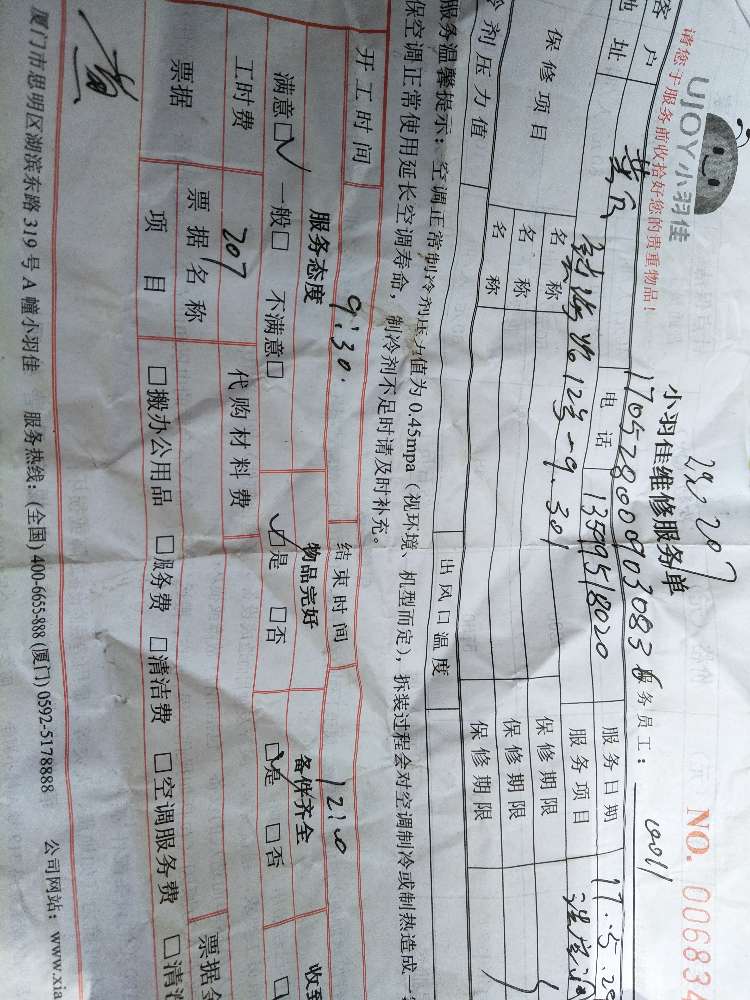 UJOY小羽佳
小羽佳维修服务单
NO. 006834
请您于服务前收拾好您的贵重物品！
服务员工：0011
客户
电话 13599518020
服务日期 17.5.20
地址
12号-9.301
服务项目
保修项目
名称
保修期限
名称
保修期限
名称
保修期限
冷剂压力值
出风口温度
服务温馨提示：空调正常制冷剂压力值为 0.45mpa（视环境、机型而定），拆装过程会对空调制冷或制热造成一
保空调正常使用延长空调寿命，制冷剂不足时请及时补充。
开工时间 9:30.
结束时间 12:10
服务态度
物品完好
备件齐全
收到
满意☑ 一般□ 不满意□
☑是 □否
☑是 □否
工时费 207
代购材料费
票据
票据名称
票据金
项目
□搬办公用品 □服务费 □清洁费 □空调服务费 □清洁
厦门市思明区湖滨东路 319 号 A 幢小羽佳 服务热线：(全国) 400-6655-888 (厦门) 0592-5178888 公司网站：www.xia